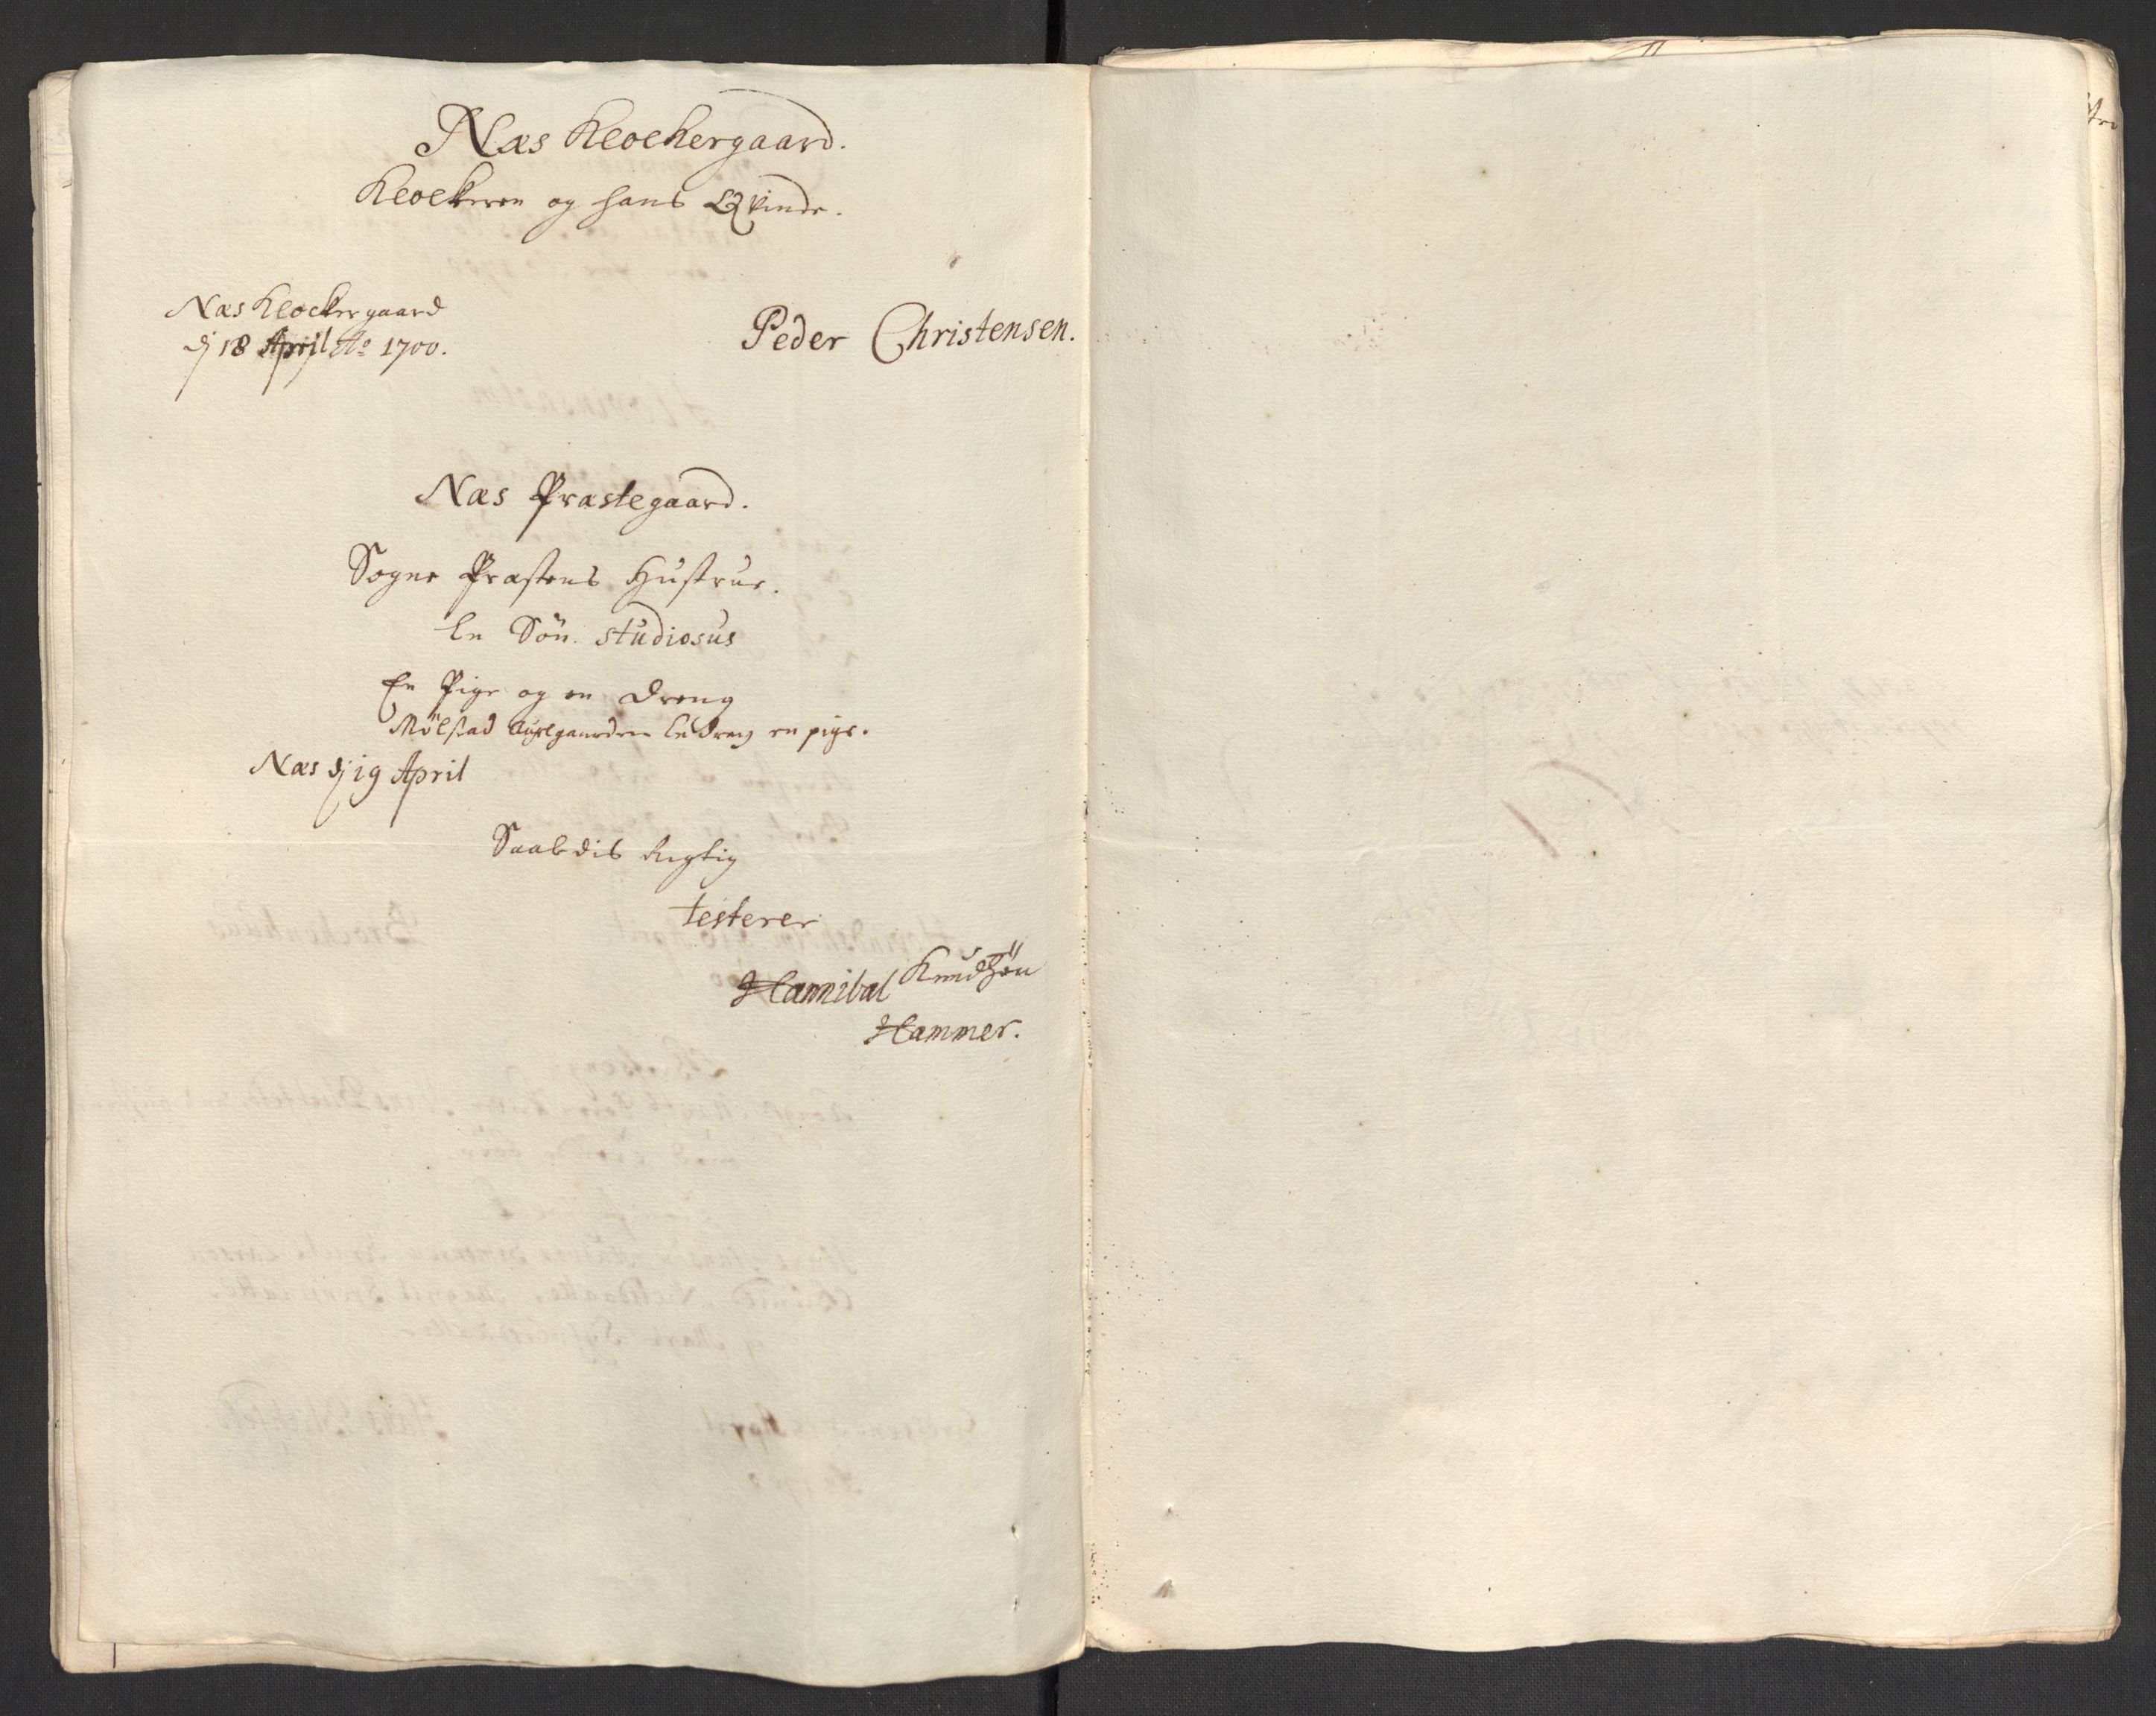 Næs Klochergaard.
Klockeren og hans Qvinde.
Næs Klockergaard
dj 18 April Ao 1700.
Peder Christensen.
Næs Præstegaard.
Sogne Præstens Hustrue.
En Sön studiosus
En Pige og en Dreng
Mölstad Auflgaarden En dreng en pige.
Næs dj 19 April
Saaledis Rigtig
testerer
Hannibal Knudsön
Hammer.